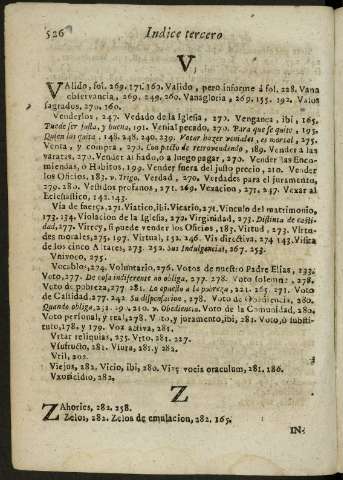 526 Indice tercero
V
VAlido, fol. 269. 171. 162. Valido, pero informe á fol. 228. Vana
observancia, 269. 249. 260. Vanagloria, 269. 155. 192. Vasos
sagrados, 270. 160.
Venderlos, 247. Vedado de la Iglesia, 270. Vengança, ibi, 165.
Puede ser justa, y buena, 191. Venial pecado, 270. Para que se quite, 195.
Quien los quita, 148. 248. 240. 239. Votar hazer veniales, es mortal, 275.
Venta, y compra, 270. Con pacto de retrovendendo, 189. Vender a las
varatas, 270. Vender al fiado, o a luego pagar, 270. Vender las Enco-
miendas, o Habitos, 199. Vender fuera del justo precio, 210. Vender
los Oficios, 183. Trigo. Verdad, 270. Verdades para el juramento,
279. 280. Vestidos profanos, 271. 169. Vexacion, 271. 247. Vexar al
Eclesiastico, 142. 143.
Via de fuerça, 271. Viatico, ibi. Vicario, 271. Vinculo del matrimonio,
173. 134. Violacion de la Iglesia, 272. Virginidad, 273. Distinta de casti-
dad, 277. Virrey, si puede vender los Oficios, 183. Virtud, 273. Virtu-
des morales, 275. 197. Virtual, 152. 246. Vis directiva, 274 143. Visita
de los cinco Altares, 273. 252. Sus Indulgencias, 267. 253.
Vnivoco, 275.
Vocablos, 274. Voluntario, 276. Votos de nuestro Padre Elias, 233.
Voto, 277. De cosa indiferente no obliga, 277. 278. Voto solemne, 278.
Voto de pobreza, 277 281. Lo opuesto a la pobreza, 221. 265. 271. Voto
de Castidad. 277. 242. Su dispensacion, 278. Voto de Obediencia, 280.
Quando obliga, 251. 19. 210. Obediencia. Voto de la Comunidad, 280.
Voto personal, y real, 278. Voto, y juramento, ibi, 281. Voto, ò substi-
tuto, 178, y 179. Vox activa, 281.
Vrtar reliquias, 235. Vrto, 281. 227.
Vsufructo, 281. Vsura, 281. y 282.
Vtil, 202.
Viejos, 282. Vicio, ibi, 280. vocis oraculum, 281. 186.
Vxoricidio, 282.
Z
ZAhories, 282. 258.
Zelos, 282. Zelos de emulacion, 282. 165.
IN-